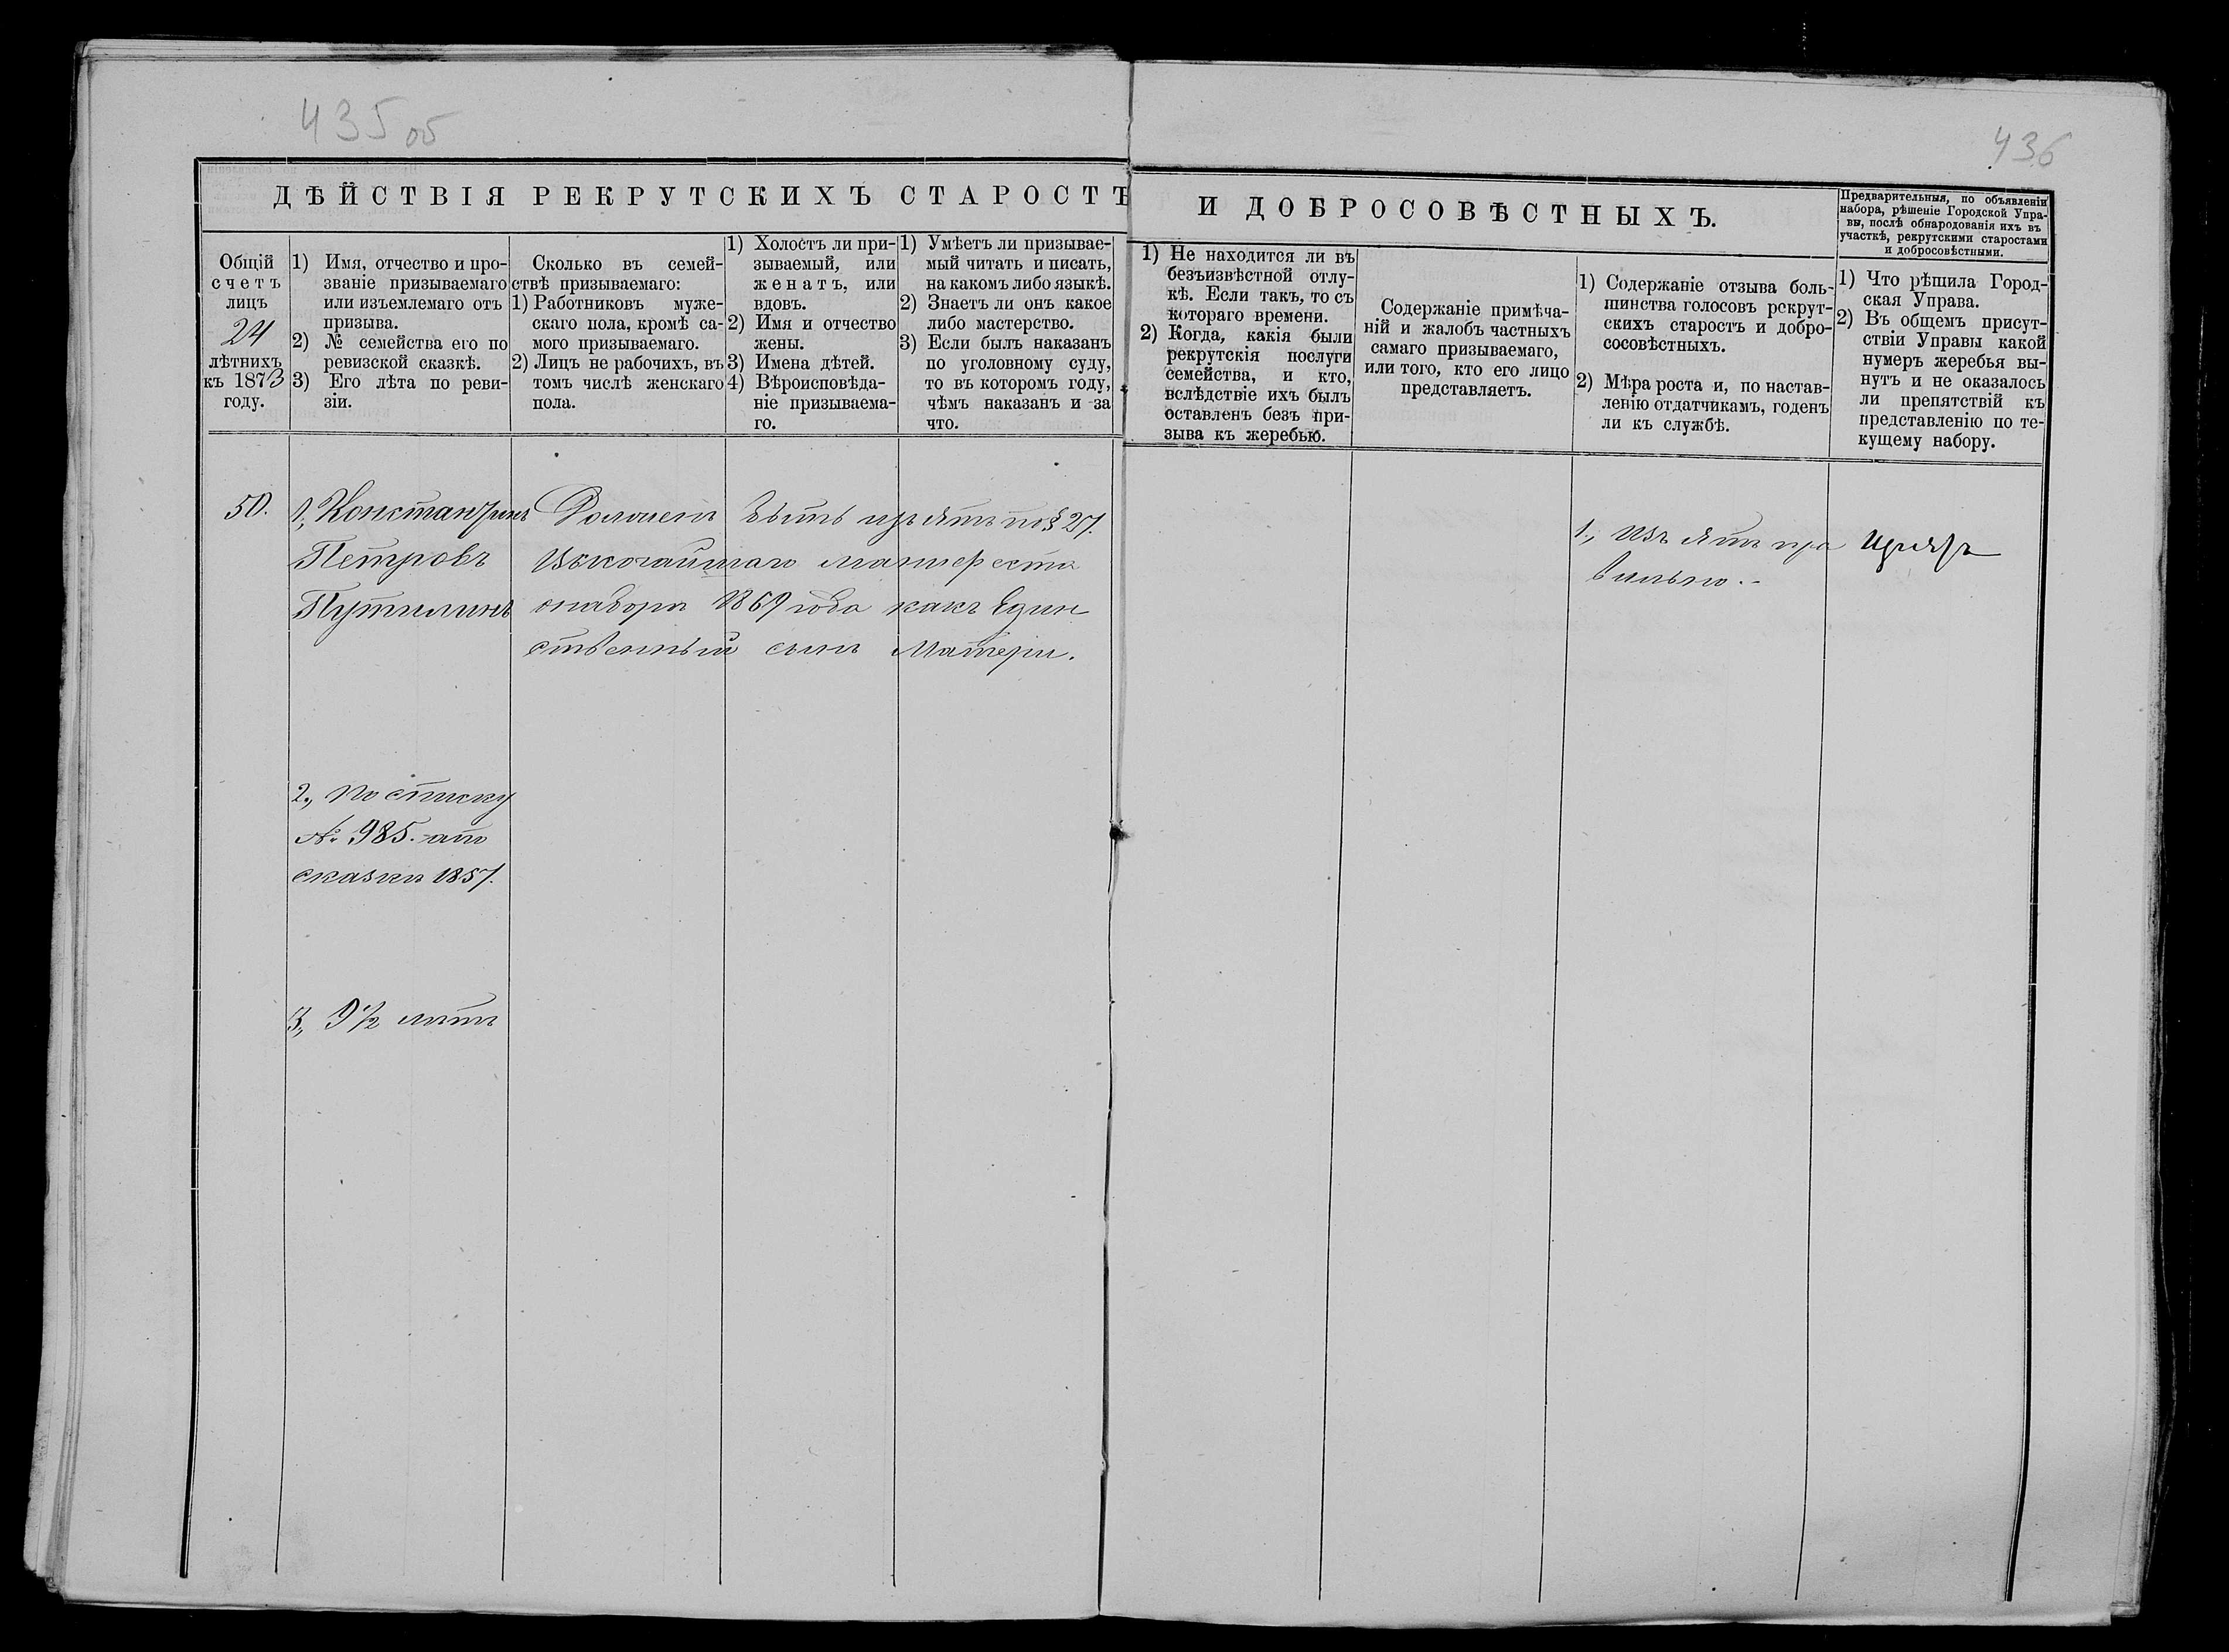 435 об
436
ДѢЙСТВІЯ РЕКРУТСКИХЪ СТАРОСТЪ
И ДОБРОСОВѢСТНЫХЪ.
Предварительныя, по объявленіи
набора, рѣшеніе Городской Упра-
вы, послѣ обнародованія ихъ въ
участкѣ, рекрутскими старостами
и добросовѣстными.
Общій
счетъ
лицъ
24
лѣтнихъ
къ 1873
году.
1) Имя, отчество и про-
званіе призываемаго
или изъемлемаго отъ
призыва.
2) № семейства его по
ревизской сказкѣ.
3) Его лѣта по реви-
зіи.
Сколько въ семей-
ствѣ призываемаго:
1) Работниковъ муже-
скаго пола, кромѣ са-
мого призываемаго.
2) Лицъ не рабочихъ, въ
томъ числѣ женскаго
пола.
1) Холостъ ли при-
зываемый, или
женатъ, или
вдовъ.
2) Имя и отчество
жены.
3) Имена дѣтей.
4) Вѣроисповѣда-
ніе призываема-
го.
1) Умѣетъ ли призывае-
мый читать и писать,
на какомъ либо языкѣ.
2) Знаетъ ли онъ какое
либо мастерство.
3) Если былъ наказанъ
по уголовному суду,
то въ которомъ году,
чѣмъ наказанъ и за
что.
1) Не находится ли въ
безъизвѣстной отлу-
кѣ. Если такъ, то съ
котораго времени.
2) Когда, какія были
рекрутскія послуги
семейства, и кто,
вслѣдствіе ихъ былъ
оставленъ безъ при-
зыва къ жеребью.
Содержаніе примѣча-
ній и жалобъ частныхъ
самаго призываемаго,
или того, кто его лицо
представляетъ.
1) Содержаніе отзыва боль-
шинства голосовъ рекрут-
скихъ старостъ и добро-
сосовѣстныхъ.
2) Мѣра роста и, по настав-
ленію отдатчикамъ, годенъ
ли къ службѣ.
1) Что рѣшила Город-
ская Управа.
2) Въ общемъ присут-
ствіи Управы какой
нумеръ жеребья вы-
нутъ и не оказалось
ли препятствій къ
представленію по те-
кущему набору.
50.
1., Константинъ
Петровъ
Путилинъ
Долженъ быть изъятъ по § 27.
Высочайшаго манифеста
о наборѣ 1869 года какъ Един
ственный сынъ Матери.
1., Изъятъ пра
вильно.-
Изъятъ
2., по списку
№ 985.
сказки 1857.
3., 9½ лѣтъ